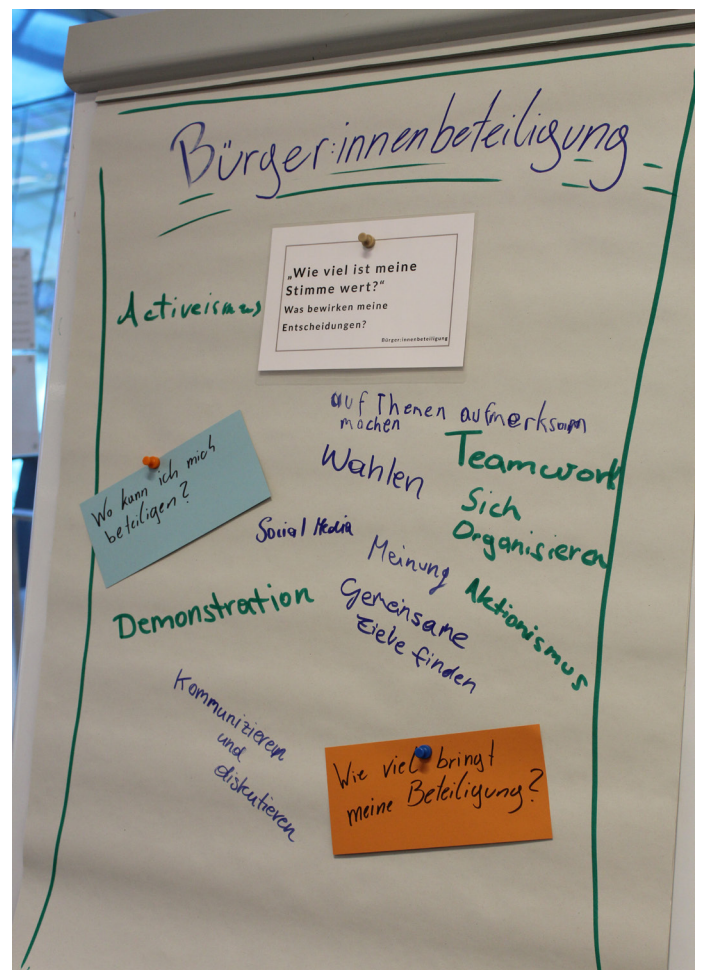 Bürger:innenbeteiligung
„Wie viel ist meine
Stimme wert?“
Was bewirken meine
Entscheidungen?
Bürger:innenbeteiligung
Activeismus
auf Themen aufmerksam
machen
Wahlen
Teamwork
Sich
Organisieren
Wo kann ich mich
beteiligen?
Social Media
Meinung
Aktionismus
Demonstration
Gemeinsame
Ziele finden
Kommunizieren
und
diskutieren
Wie viel bringt
meine Beteiligung?